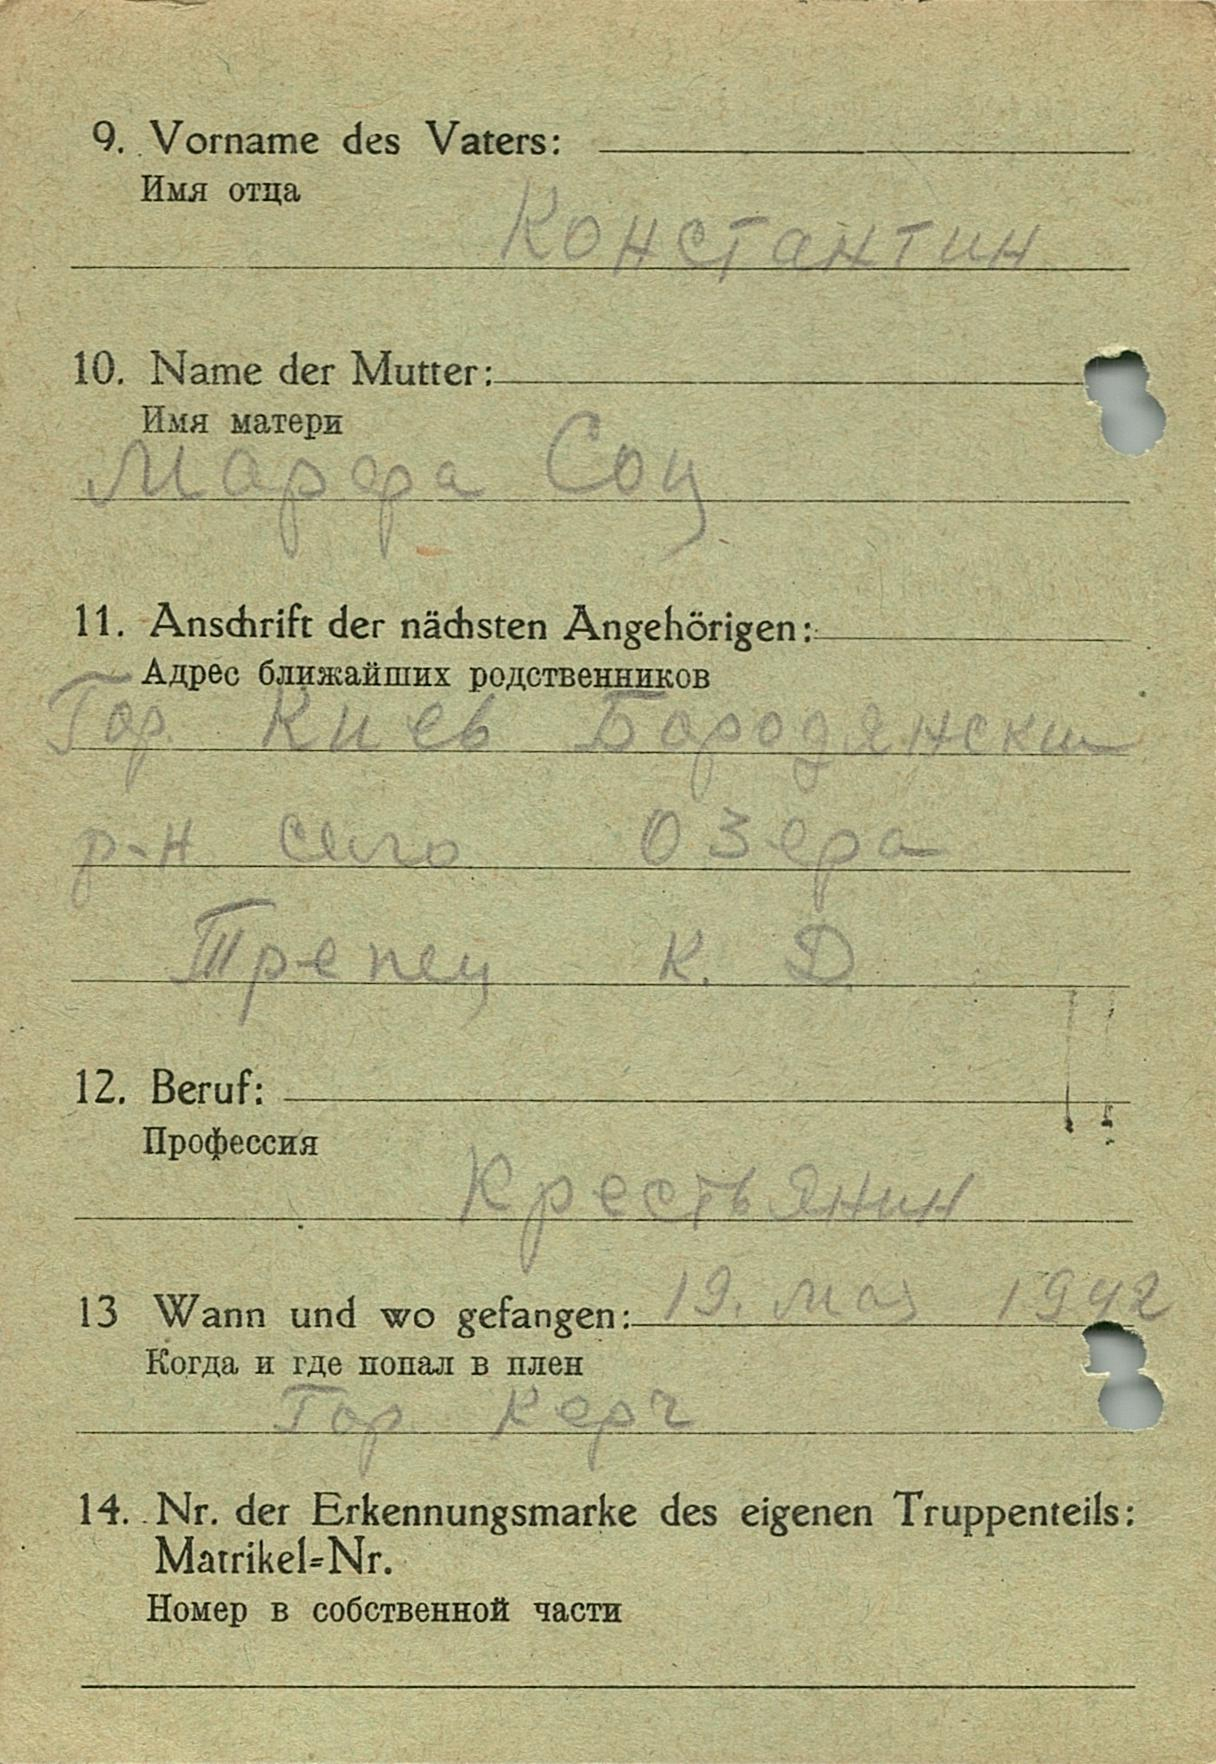 9. Vorname des Vaters:
Имя отца
Константин
10. Name der Mutter:
Имя матери
Марфа Соц
11. Anschrift der nächsten Angehörigen:
Адрес ближайших родственников
Гор. Киев Бородянски
р-н село Озера
Трепец К. Д.
12. Beruf:
Профессия
Крестьянин
13 Wann und wo gefangen: 19. мая 1942
Когда и где попал в плен
Гор. Керч
14. Nr. der Erkennungsmarke des eigenen Truppenteils:
Matrikel=Nr.
Номер в собственной части